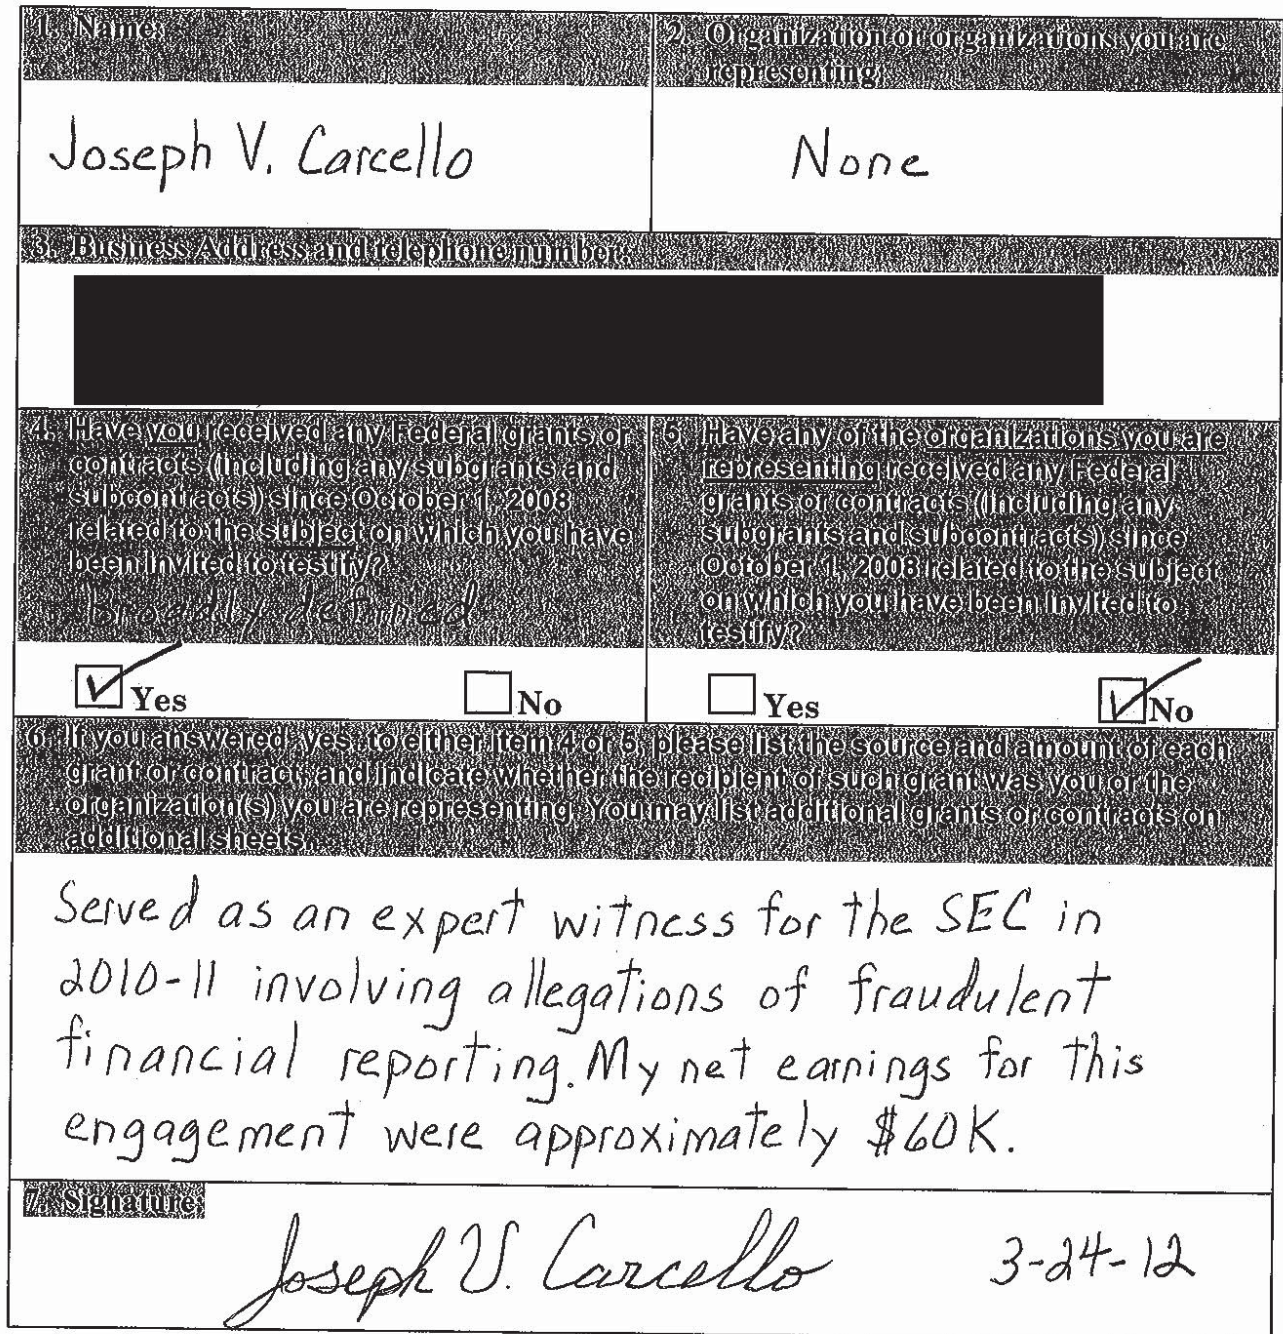 1. Name:
2. Organization or organizations you are
representing:
Joseph V. Carcello
None
3. Business Address and telephone number:
4. Have you received any Federal grants or
contracts (including any subgrants and
subcontracts) since October 1, 2008
related to the subject on which you have
been invited to testify?
Broadly defined
Yes
No
5. Have any of the organizations you are
representing received any Federal
grants or contracts (including any
subgrants and subcontracts) since
October 1, 2008 related to the subject
on which you have been invited to
testify?
Yes
No
6. If you answered yes to either item 4 or 5, please list the source and amount of each
grant or contract, and indicate whether the recipient of such grant was you or the
organization(s) you are representing. You may list additional grants or contracts on
additional sheets.
Served as an expert witness for the SEC in
2010-11 involving allegations of fraudulent
financial reporting. My net earnings for this
engagement were approximately $60K.
7. Signature:
Joseph V. Carcello 3-24-12